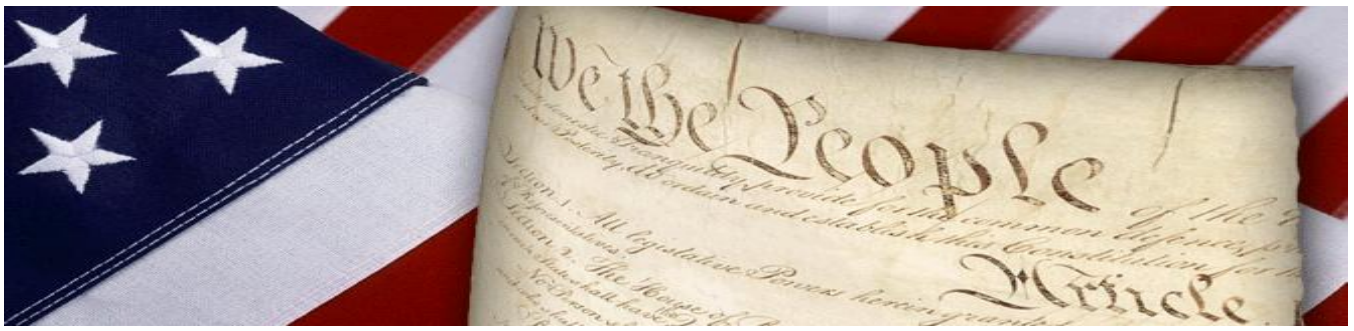 We the People of the
domestic Tranquility, provide for the common defence,
and our Posterity, do ordain and establish this Constitution for
Article
Section. 1. All legislative Powers herein
of Representatives.
Section. 2. The House of
State shall have
No Person